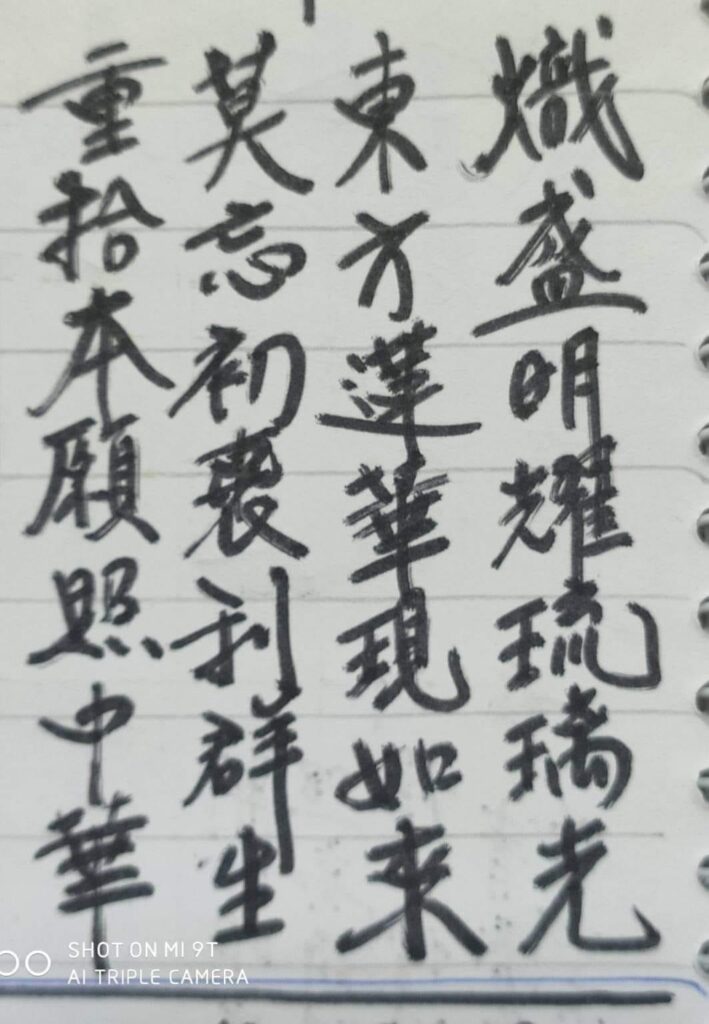 熾盛明耀琉璃光
東方蓮華現如來
莫忘初裏利群生
重拾本願照中華
SHOT ON MI 9T
AI TRIPLE CAMERA